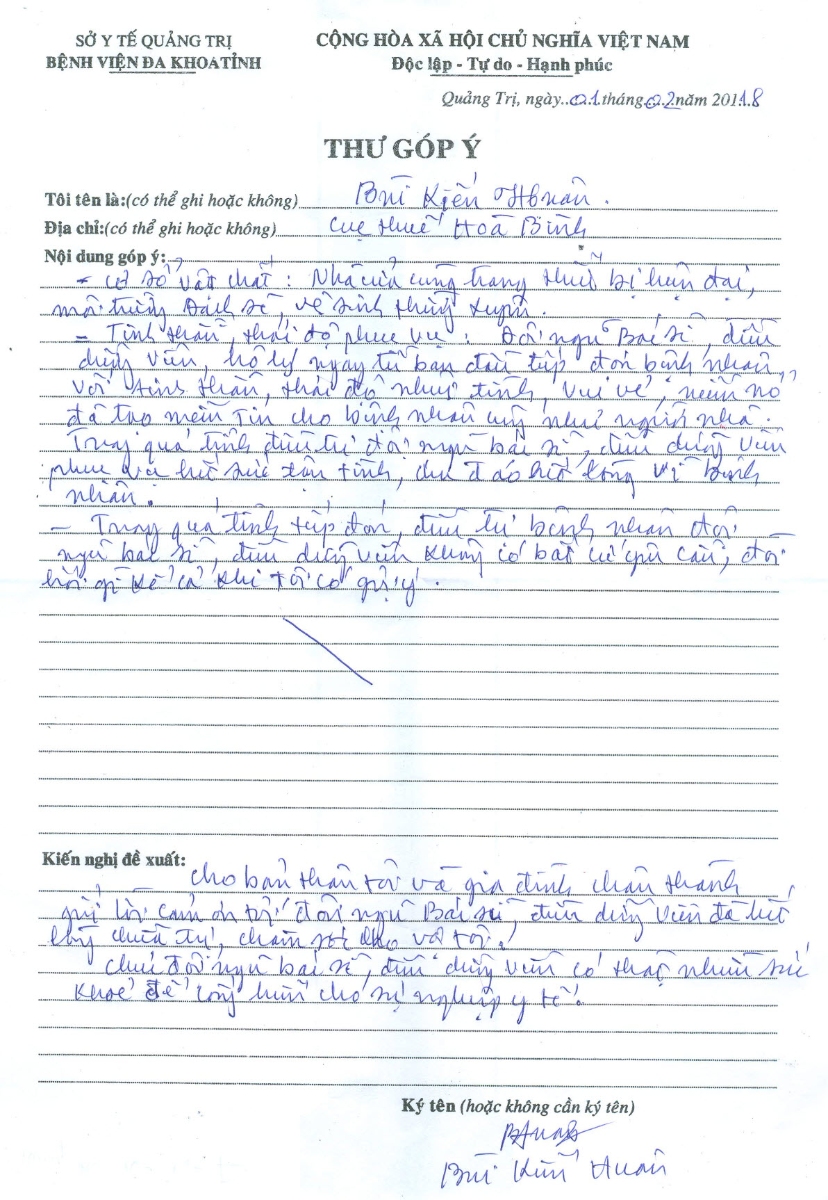 SỞ Y TẾ QUẢNG TRỊ
BỆNH VIỆN ĐA KHOA TỈNH
CỘNG HÒA XÃ HỘI CHỦ NGHĨA VIỆT NAM
Độc lập - Tự do - Hạnh phúc
Quảng Trị, ngày..01.tháng 02 năm 2018
THƯ GÓP Ý
Tôi tên là:(có thể ghi hoặc không) Bùi Kiến Huân.
Địa chỉ:(có thể ghi hoặc không) Cục thuế Hoà Bình
Nội dung góp ý:
- Cơ sở vật chất: Nhà cửa cùng trang thiết bị hiện đại,
môi trường sạch sẽ, vệ sinh thường xuyên.
- Tinh thần, thái độ phục vụ: Đội ngũ Bác sĩ, điều
dưỡng viên, hộ lý ngay từ ban đầu tiếp đón bệnh nhân
với tinh thần, thái độ nhiệt tình, vui vẻ, niềm nở
đã tạo niềm tin cho bệnh nhân cũng như người nhà.
Trong quá trình điều trị đội ngũ bác sĩ, điều dưỡng viên
phục vụ hết sức tận tình, chu đáo hết lòng vì bệnh
nhân.
- Trong quá trình tiếp đón, điều trị bệnh nhân đội
ngũ bác sĩ, điều dưỡng viên không có bất cứ yêu cầu, đòi
hỏi gì kể cả khi tôi có gợi ý.
Kiến nghị đề xuất:
Cho bản thân tôi và gia đình chân thành
gửi lời cảm ơn tới đội ngũ Bác sĩ, điều dưỡng viên đã hết
lòng chữa trị, chăm sóc cho vợ tôi.
Chúc đội ngũ bác sĩ, điều dưỡng viên có thật nhiều sức
khoẻ để cống hiến cho sự nghiệp y tế.
Ký tên (hoặc không cần ký tên)
Bùi Kiến Huân